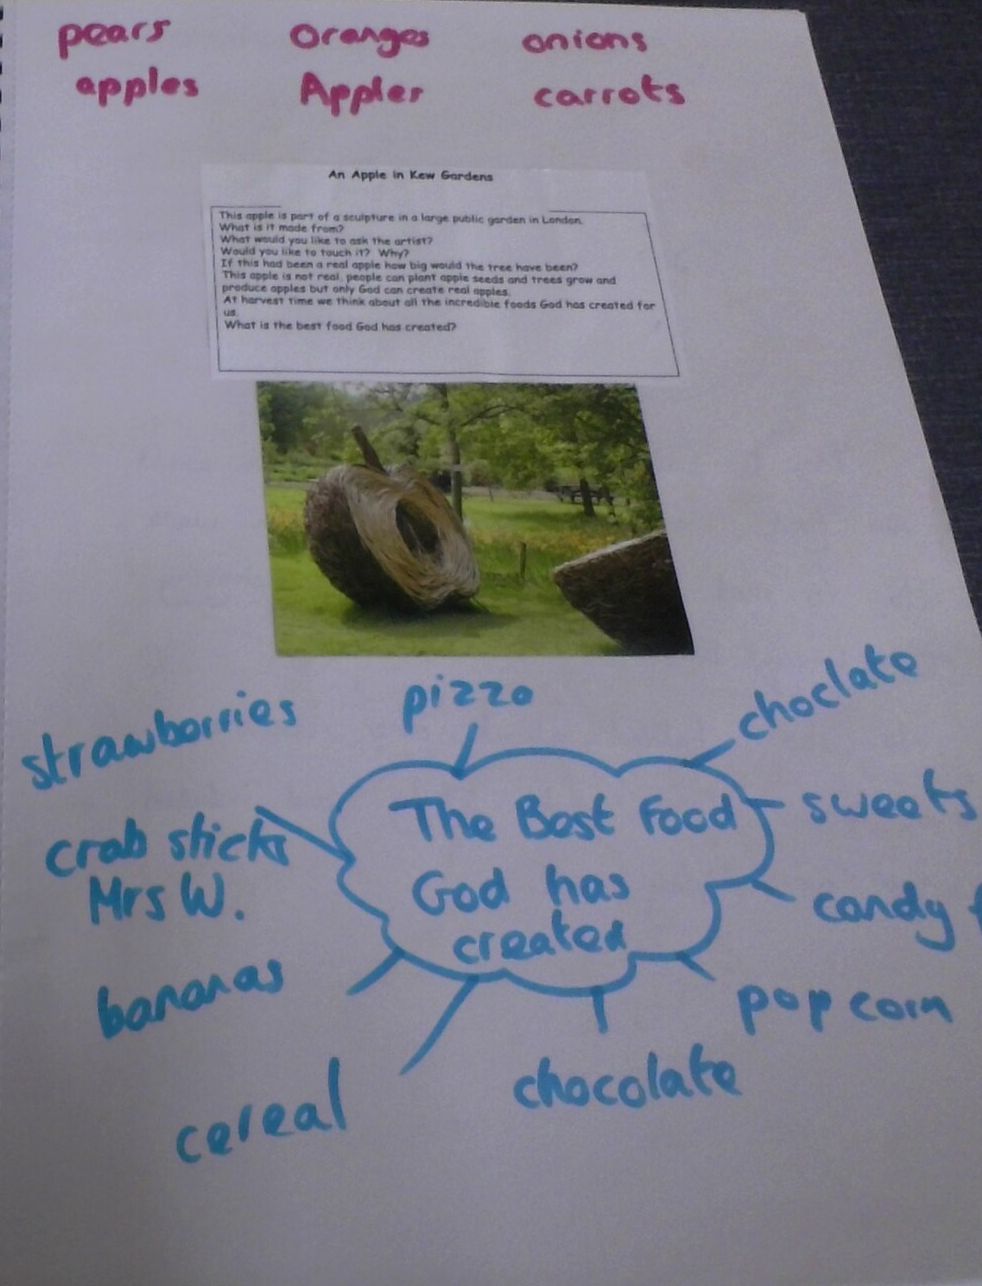 pears Oranges onions
apples Appler carrots
An Apple in Kew Gardens
This apple is part of a sculpture in a large public garden in London.
What is it made from?
What would you like to ask the artist?
Would you like to touch it? Why?
If this had been a real apple how big would the tree have been?
This apple is not real, people can plant apple seeds and trees grow and
produce apples but only God can create real apples.
At harvest time we think about all the incredible foods God has created for
us.
What is the best food God has created?
strawberries
pizza
choclate
The Best Food
God has
created
sweets
crab sticks
Mrs W.
candy
bananas
pop corn
cereal
chocolate